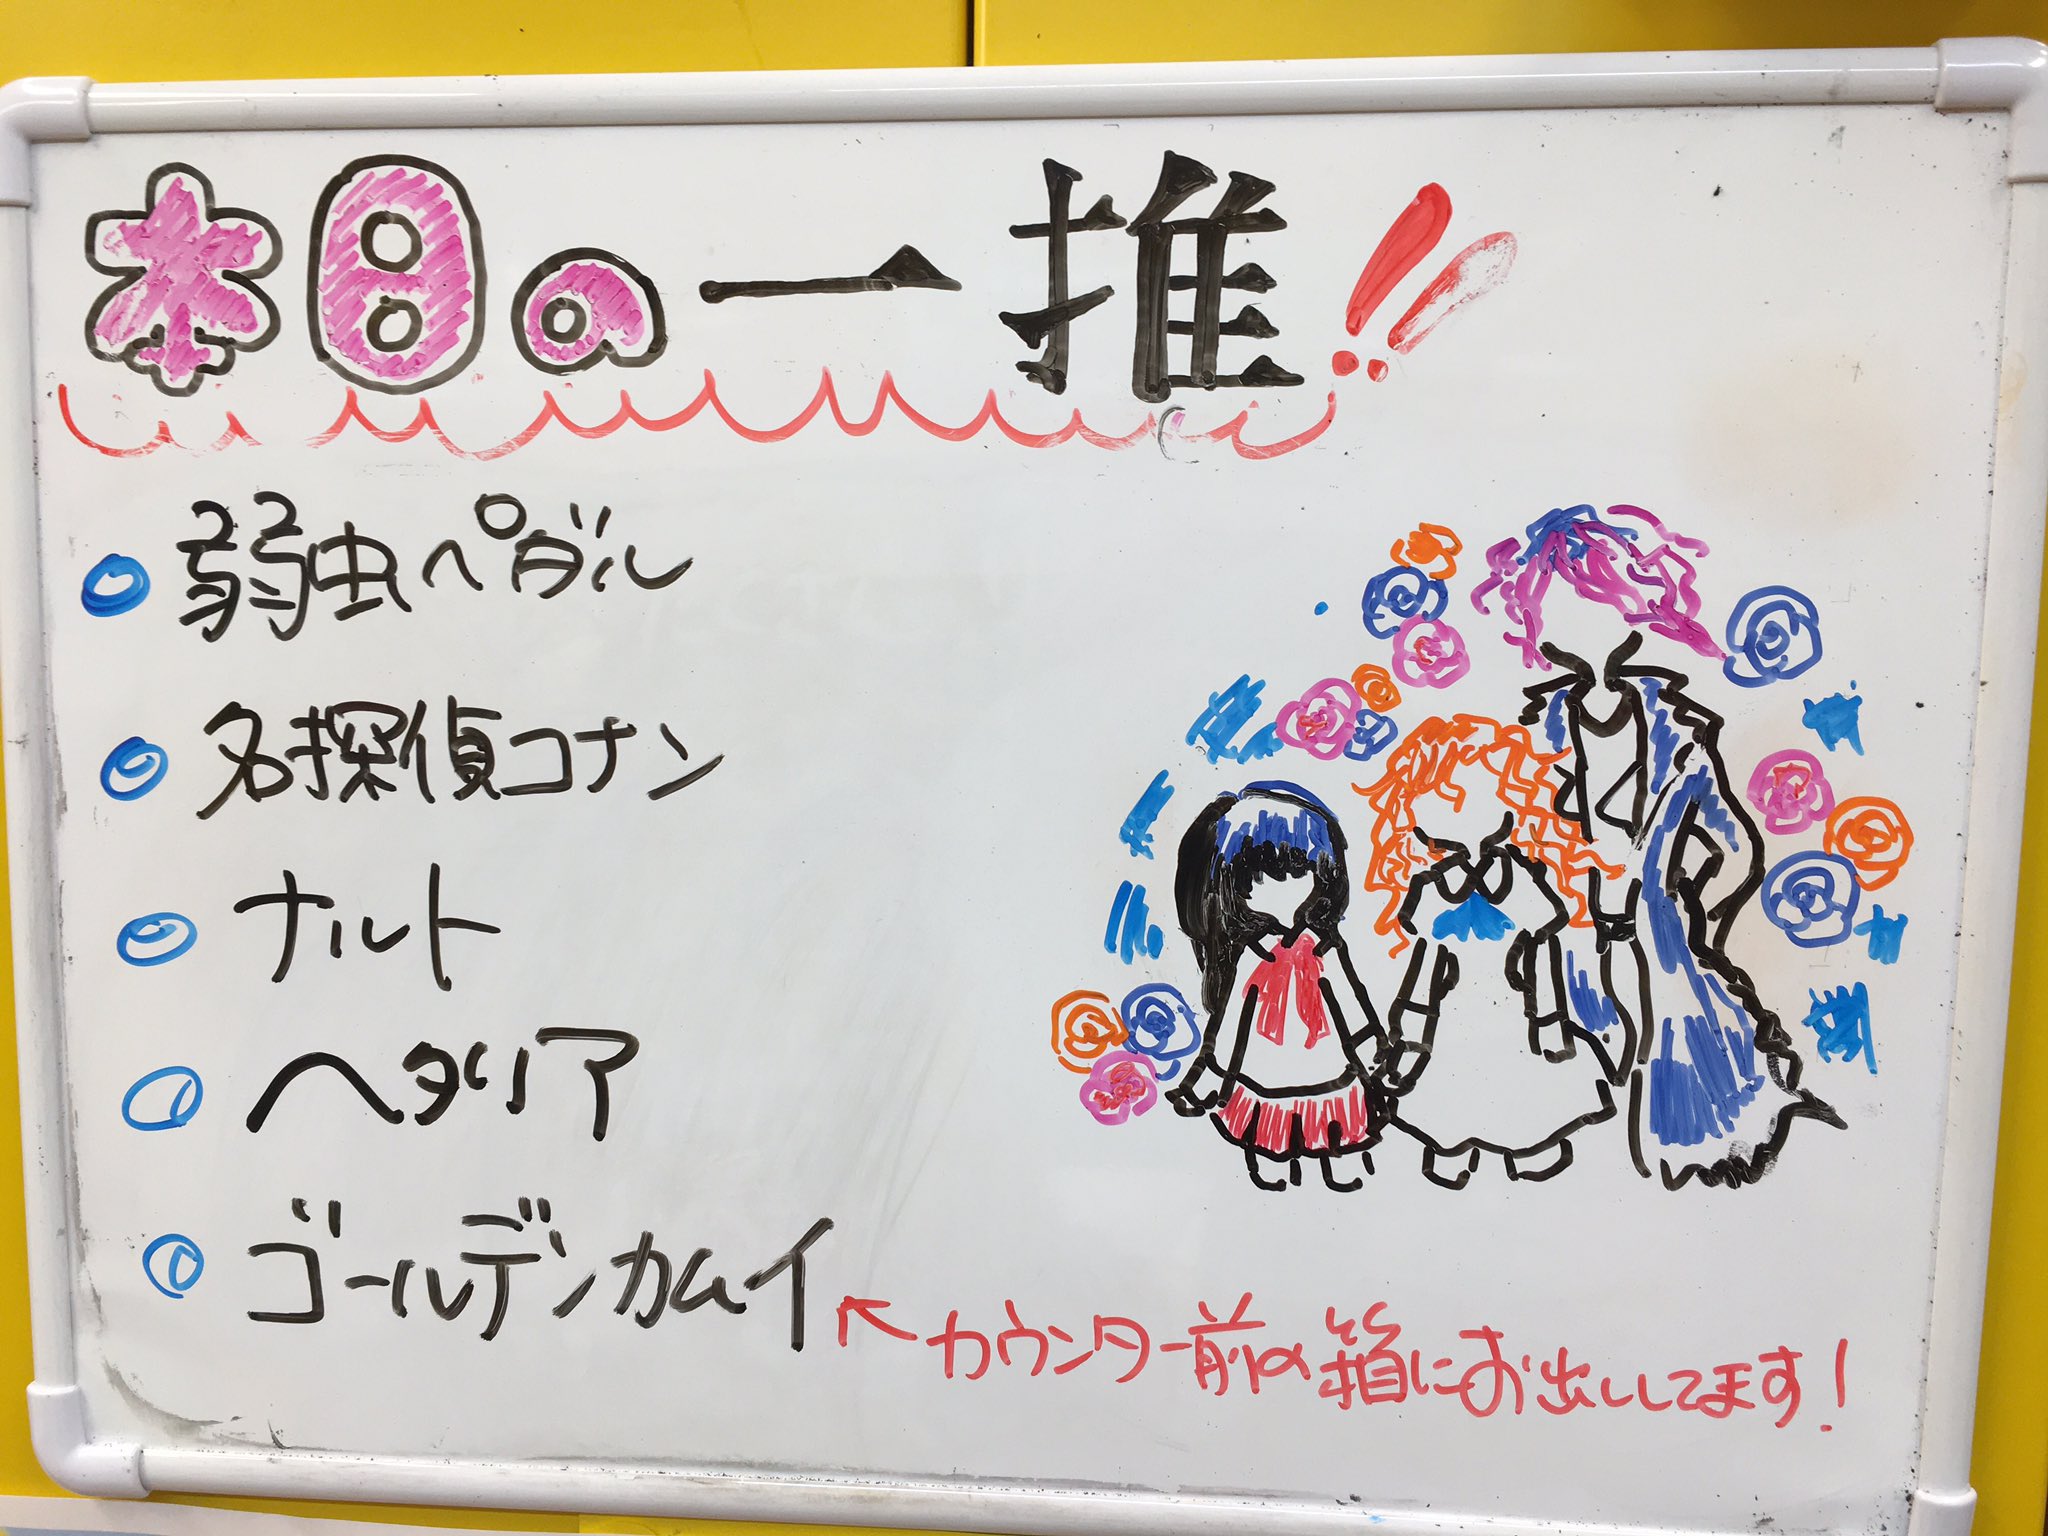 本日の一推!!
弱虫ペダル
名探偵コナン
ナルト
ヘタリア
ゴールデンカムイ
←カウンター前の箱にお出ししてます!